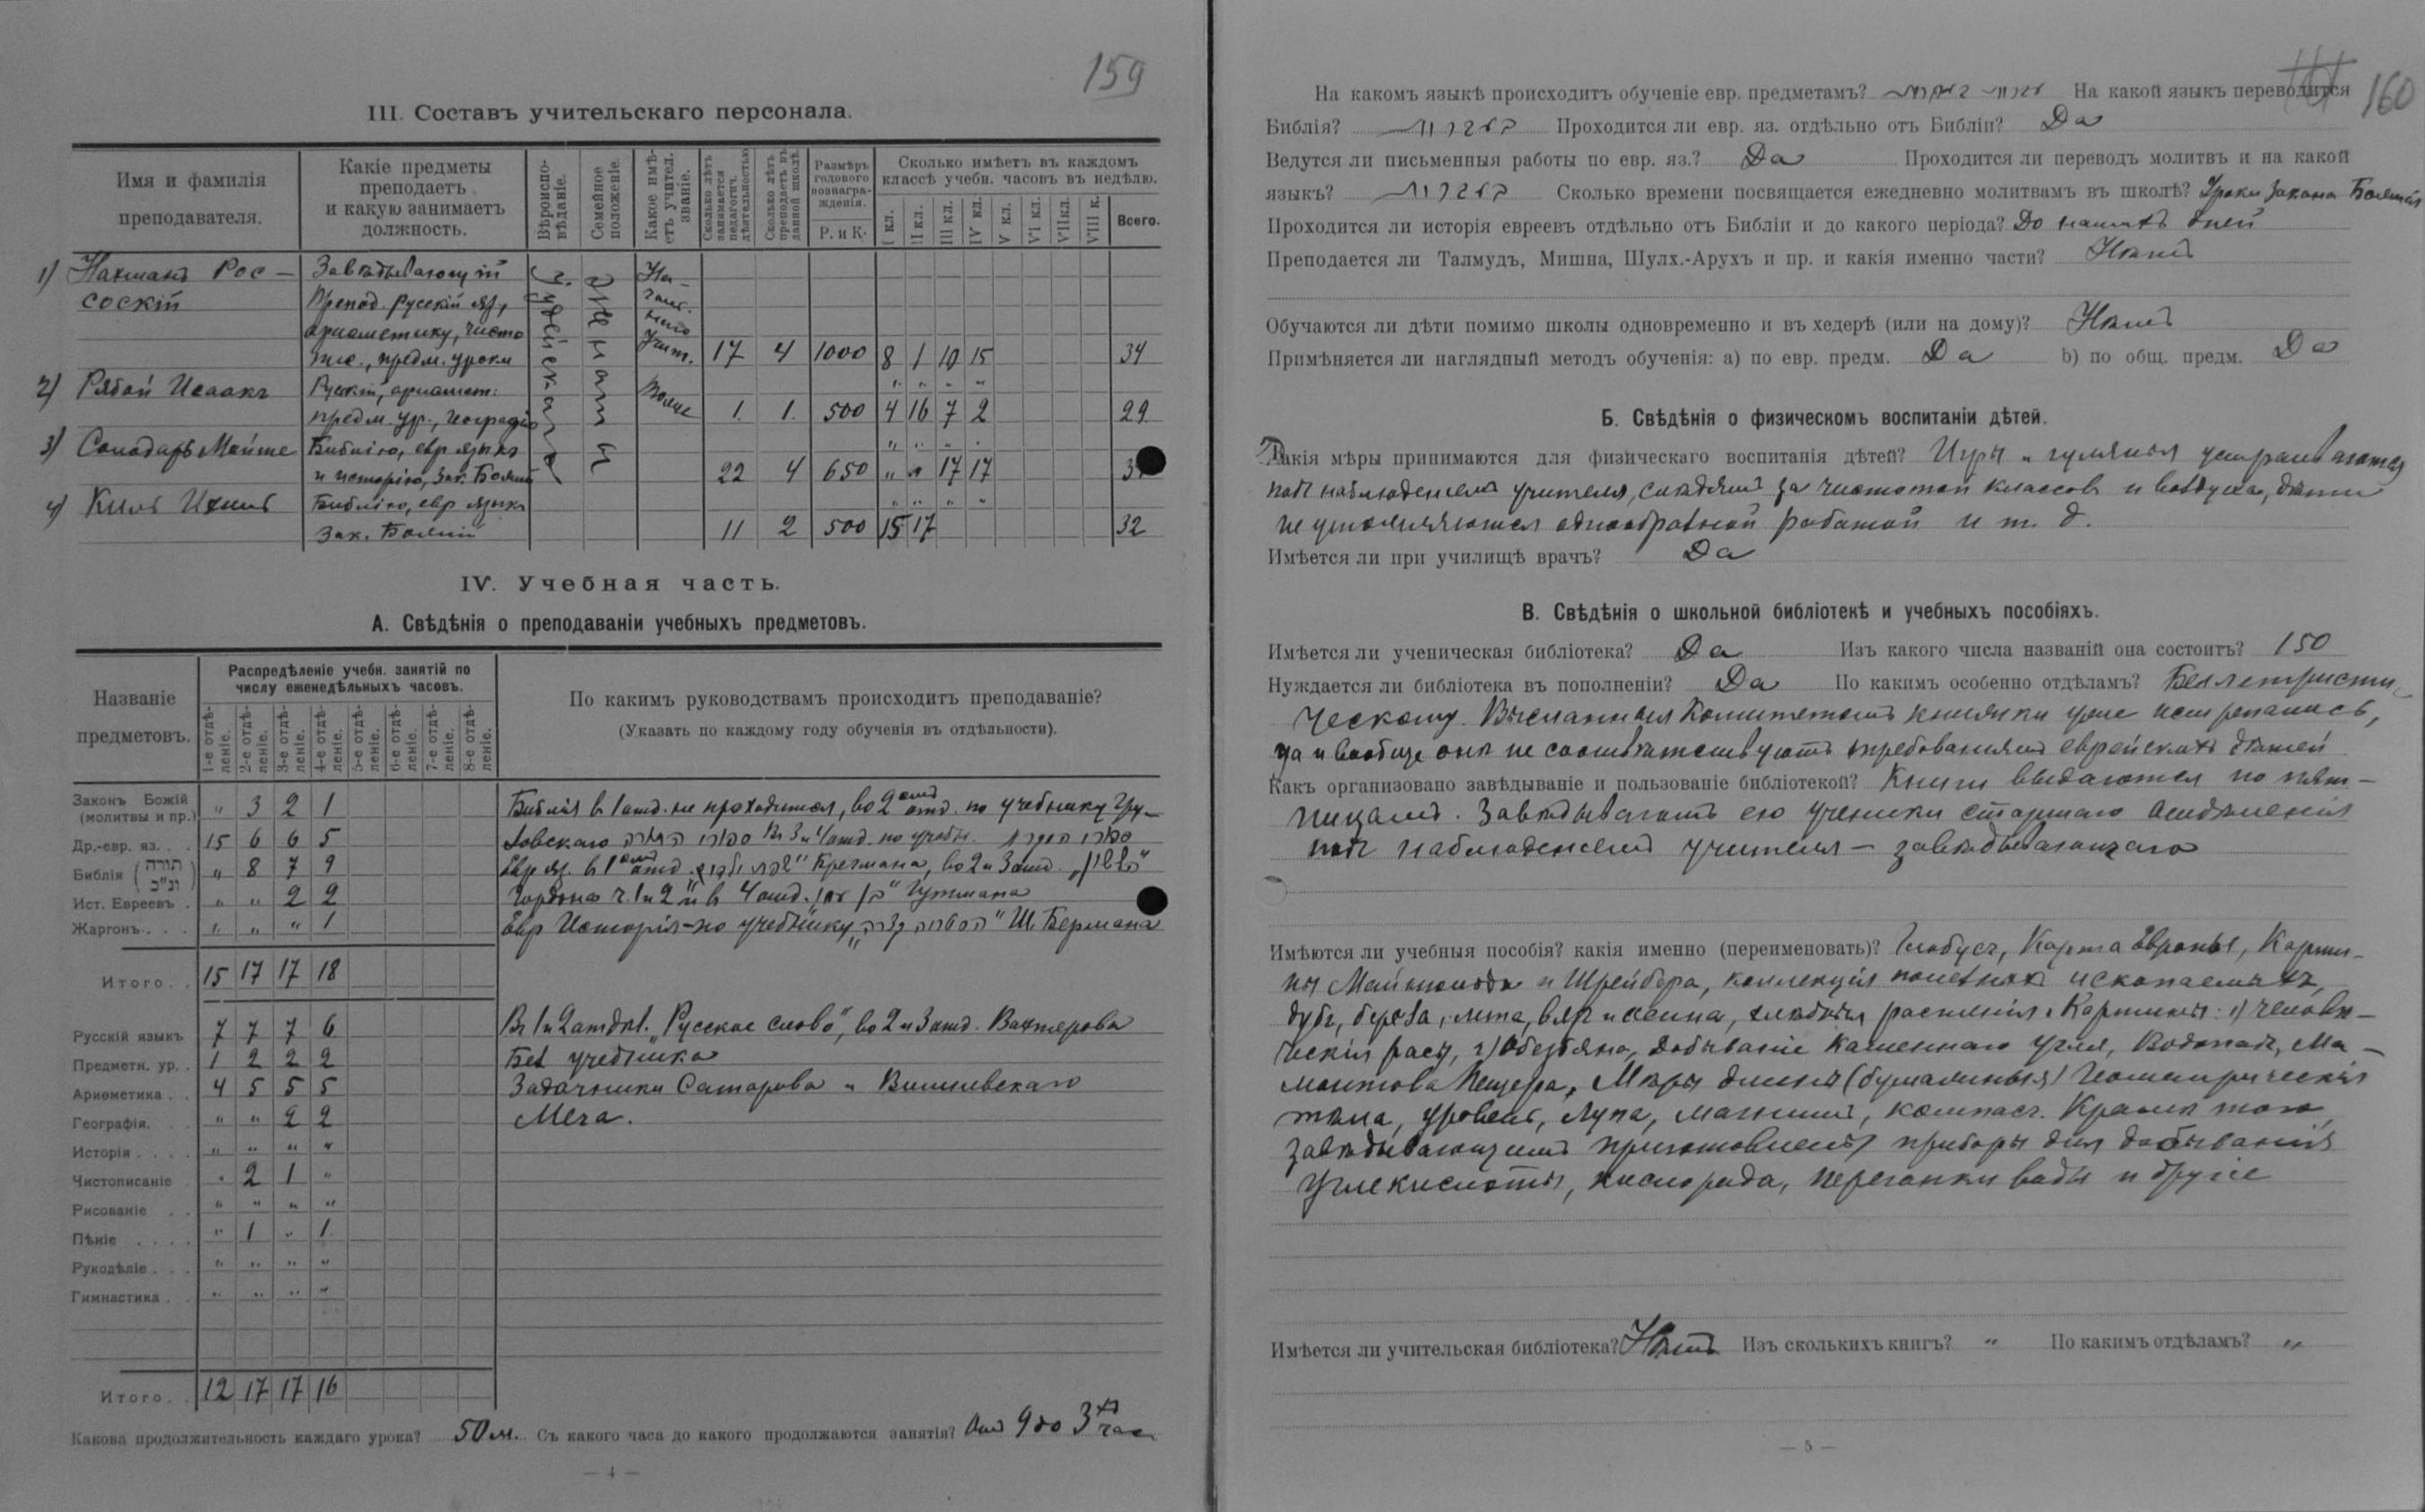 159
III. Составъ учительскаго персонала.
Имя и фамилія преподавателя.
Какіе предметы преподаетъ и какую занимаетъ должность.
Вѣроиспо-вѣданіе.
Семейное положеніе.
Какое имѣ-етъ учител. званіе.
Сколько лѣтъ занимается педагогич. дѣятельностью
Сколько лѣтъ преподаетъ въ данной школѣ.
Размѣръ годового вознагра-жденія.
Р. и К.
Сколько имѣетъ въ каждомъ классѣ учебн. часовъ въ недѣлю.
I кл. II кл. III кл. IV кл. V кл. VI кл. VII кл. VIII к. Всего.
1) Нахманъ Рос- Завѣдывающій
соскій Препод. русскій яз,
ариѳметику, чисто
пис., предм. уроки 17 4 1000 8 1 10 15 34
Іудейскаго
Женаты
На-
чит.
2) Рябой Исаакъ Русскій, ариѳмет:
предм. ур., географію 1. 1. 500 4 16 7 2 29
3) Сандаръ Мойше Библію, евр языкъ
и исторію, Зак. Божій 22 4 650 " " 17 17
4) Библію, евр языкъ
Зак. Божій 11 2 500 15 17 32
IV. Учебная часть.
А. Свѣдѣнія о преподаваніи учебныхъ предметовъ.
Названіе предметовъ.
Распредѣленіе учебн. занятій по числу еженедѣльныхъ часовъ.
1-е отдѣ-леніе. 2-е отдѣ-леніе. 3-е отдѣ-леніе. 4-е отдѣ-леніе. 5-е отдѣ-леніе. 6-е отдѣ-леніе. 7-е отдѣ-леніе. 8-е отдѣ-леніе.
По какимъ руководствамъ происходитъ преподаваніе?
(Указать по каждому году обученія въ отдѣльности).
Законъ Божій (молитвы и пр.) " 3 2 1 Библія въ 1 отд. не проходится, во 2 отд. по учебнику Гру-
Др.-евр. яз. . . 15 6 6 5 ловскаго ספורי התורה въ 3 и 4 отд. по учебн.
Библія (תורה ונ"כ) " 8 7 9 Евр яз. въ 1 отд. Кречмана, во 2 и 3 отд.
Ист. Евреевъ . " " 2 2 Гордона ч. 1 и 2 и въ 4 отд. Гутмана
Жаргонъ. . . " " " 1 Евр Исторія - по учебнику Ш. Бермана
Итого. . 15 17 17 18
Русскій языкъ 7 7 7 6 Въ 1 и 2 отдѣл. „Русское слово", во 2 и 3 отд. Вахтерова
Предметн. ур. . 1 2 2 2 Безъ учебника
Ариѳметика . . 4 5 5 5 Задачники Сатарова и Вишневскаго
Географія. . . " " 2 2 Меча.
Исторія . . . . " " " "
Чистописаніе . " 2 1 "
Рисованіе . . " " " "
Пѣніе . . . . " 1 " 1
Рукодѣліе . . . " " " "
Гимнастика . . " " " "
Итого. . 12 17 17 16
Какова продолжительность каждаго урока? 50 м. Съ какого часа до какого продолжаются занятія? Отъ 9 до 3х час
— 4 —
160
На какомъ языкѣ происходитъ обученіе евр. предметамъ? На какой языкъ переводится
Библія? Проходится ли евр. яз. отдѣльно отъ Библіи? Да
Ведутся ли письменныя работы по евр. яз.? Да Проходится ли переводъ молитвъ и на какой
языкъ? Сколько времени посвящается ежедневно молитвамъ въ школѣ? Уроки Закона Божія
Проходится ли исторія евреевъ отдѣльно отъ Библіи и до какого періода? До нашихъ дней
Преподается ли Талмудъ, Мишна, Шулх.-Арухъ и пр. и какія именно части? Нѣтъ
Обучаются ли дѣти помимо школы одновременно и въ хедерѣ (или на дому)? Нѣтъ
Примѣняется ли наглядный методъ обученія: а) по евр. предм. Да b) по общ. предм. Да
Б. Свѣдѣнія о физическомъ воспитаніи дѣтей.
Какія мѣры принимаются для физическаго воспитанія дѣтей? Игры и гулянья устраиваются
подъ наблюденіемъ учителя, слѣдятъ за чистотой классовъ и воздуха, дѣти
не утомляются однообразной работой и т. д.
Имѣется ли при училищѣ врачъ? Да
В. Свѣдѣнія о школьной библіотекѣ и учебныхъ пособіяхъ.
Имѣется ли ученическая библіотека? Да Изъ какого числа названій она состоитъ? 150
Нуждается ли библіотека въ пополненіи? Да По какимъ особенно отдѣламъ? Беллетристи-
ческому. Высланныя Комитетомъ книжки уже истрепались,
да и вообще онѣ не соотвѣтствуютъ требованіямъ еврейскихъ дѣтей
Какъ организовано завѣдываніе и пользованіе библіотекой? Книги выдаются по пят-
ницамъ. Завѣдываютъ ею ученики старшаго отдѣленія
подъ наблюденіемъ учителя - завѣдывающаго
Имѣются ли учебныя пособія? какія именно (переименовать)? Глобусъ, Карта Европы, Карти-
ны и Шрейбера, коллекція полезныхъ ископаемыхъ,
дубъ, береза, липа, вязъ и сосна, хлѣбныя растенія. Картины: 1) человѣ-
ческія расы, 2) Обезьяна, добываніе каменнаго угля, Водопадъ, Ма-
монтова пещера, Мѣры длины (бумажныя) Геометрическія
тѣла, уровень, лупа, магнитъ, компасъ. Кромѣ того,
завѣдывающимъ приготовлены приборы для добыванія
углекислоты, кислорода, перегонки воды и другіе
Имѣется ли учительская библіотека? Нѣтъ Изъ сколькихъ книгъ? " По какимъ отдѣламъ? "
— 5 —